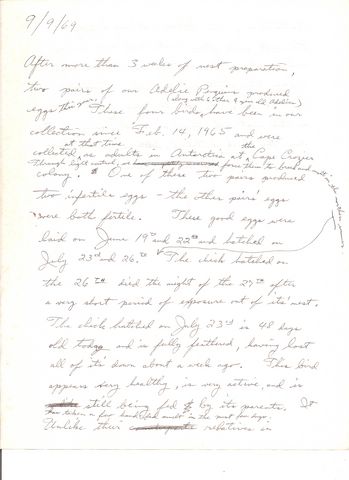 9/9/69
After more than 3 weeks of nest preparation,
two pairs of our Adelie Penguins produced
(along with 6 other 9 year old Adelies)
eggs this year. These four birds have been in our
collection since Feb. 14, 1965 and were
at that time the
collected as adults in Antarctica at Cape Crozier
Through light control, we force them to breed and molt in the northern
colony. One of these two pairs produced
two infertile eggs - the other pair's eggs
were both fertile. These good eggs were
laid on June 19th and 22nd and hatched on
July 23rd and 26th. The chick hatched on
the 26th died the night of the 27th after
a very short period of exposure out of its' nest.
The chick hatched on July 23rd is 48 days
old today and is fully feathered, having lost
all of it's down about a week ago. This bird
appears very healthy, is very active, and is
still being fed by its parents. It
has taken a few hand fed smelt in the last few days.
Unlike their relatives in